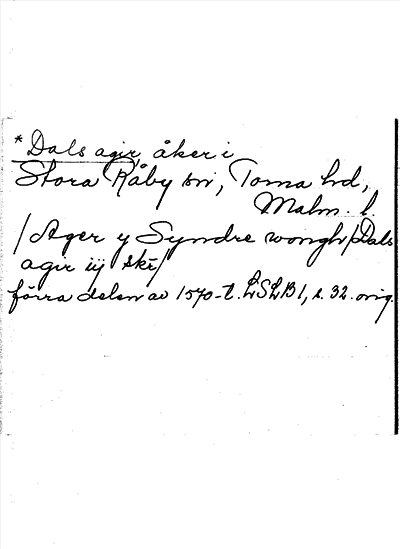 * Dals agir, åker i
Stora Råby sn, Torna hd,
Malm. l.
/ Ager y Syndre wongh / Dals
agir iij skr /
förra delen av 1570-t. LSLB 1, s. 32. orig.